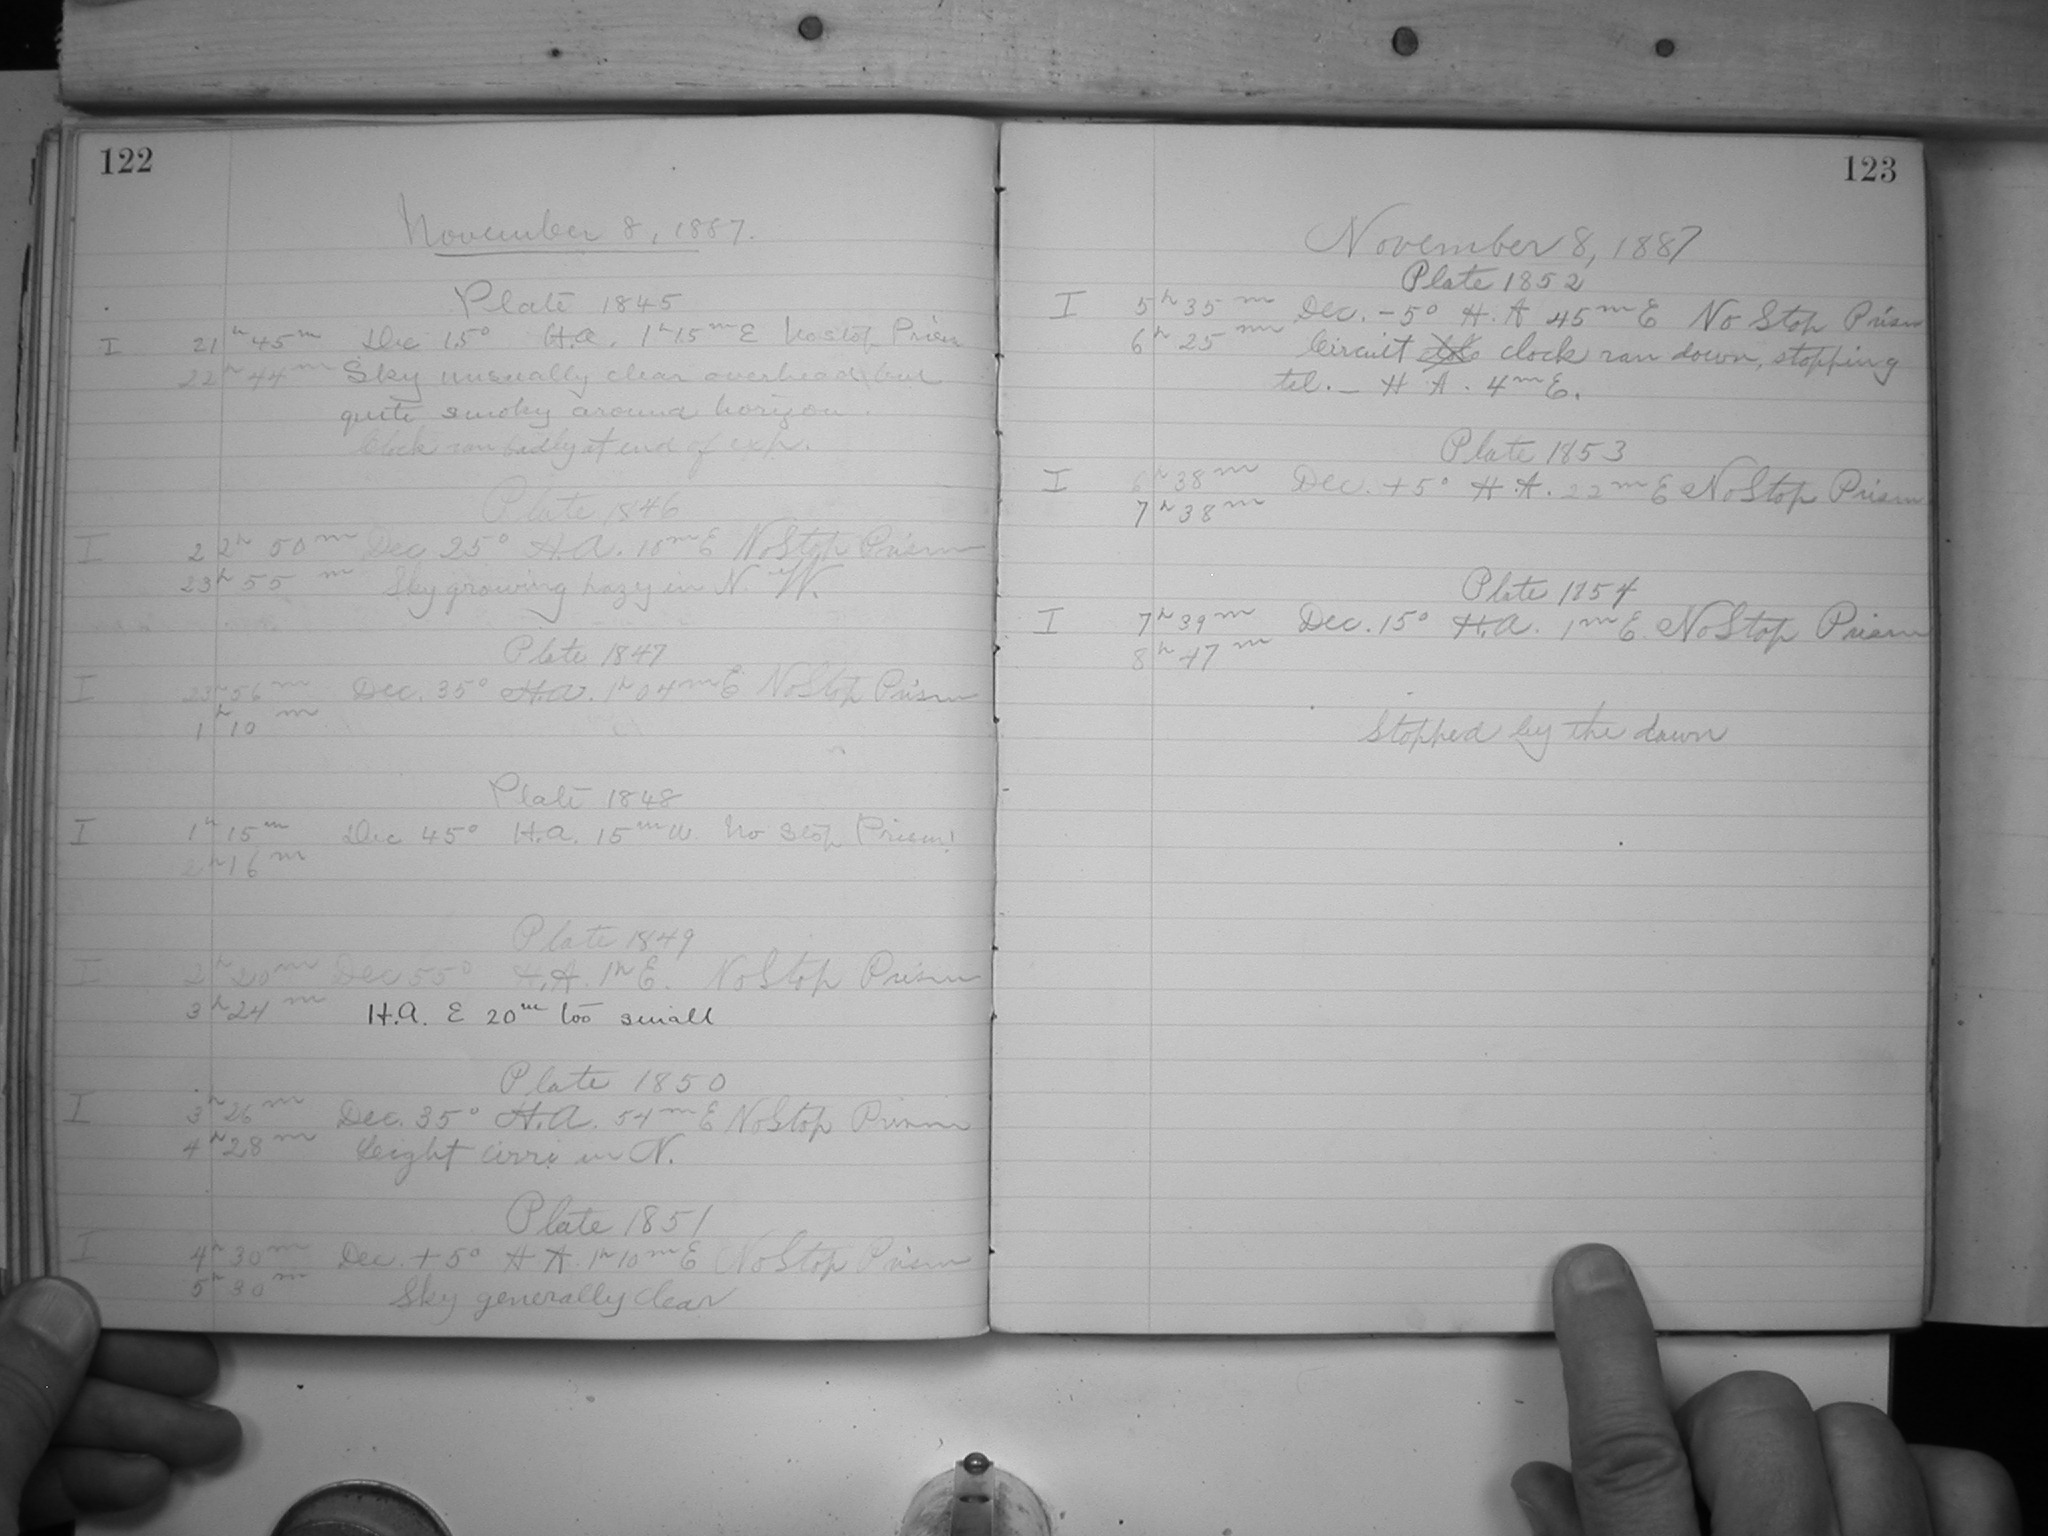 122
November 8, 1887.
Plate 1845
I 21h 45m Dec 15° H.A. 1h 15m E No Stop Prism
22h 44m Sky unusually clear overhead but
quite smoky around horizon.
Clock ran badly at end of exp.
Plate 1846
I 22h 50m Dec 25° H.A. 10m E No Stop Prism
23h 55m Sky growing hazy in N. W.
Plate 1847
I 23h 56m Dec. 35° H.A. 1h 04m E No Stop Prism
1h 10m
Plate 1848
I 1h 15m Dec 45° H.A. 15m W. No Stop Prism
2h 16m
Plate 1849
I 2h 20m Dec 55° H.A. 1h E. No Stop Prism
3h 24m H.A. E 20m too small
Plate 1850
I 3h 26m Dec. 35° H.A. 54m E No Stop Prism
4h 28m Light cirri in N.
Plate 1851
I 4h 30m Dec. +5° H A. 1h 10m E No Stop Prism
5h 30m Sky generally clear
123
November 8, 1887
Plate 1852
I 5h 35m Dec. -5° H.A 45m E No Stop Prism
6h 25m Circuit clock ran down, stopping
tel. – H A. 4m E.
Plate 1853
I 6h 38m Dec. +5° H.A. 22m E No Stop Prism
7h 38m
Plate 1854
I 7h 39m Dec. 15° H.A. 1m E. No Stop Prism
8h 47m
Stopped by the dawn